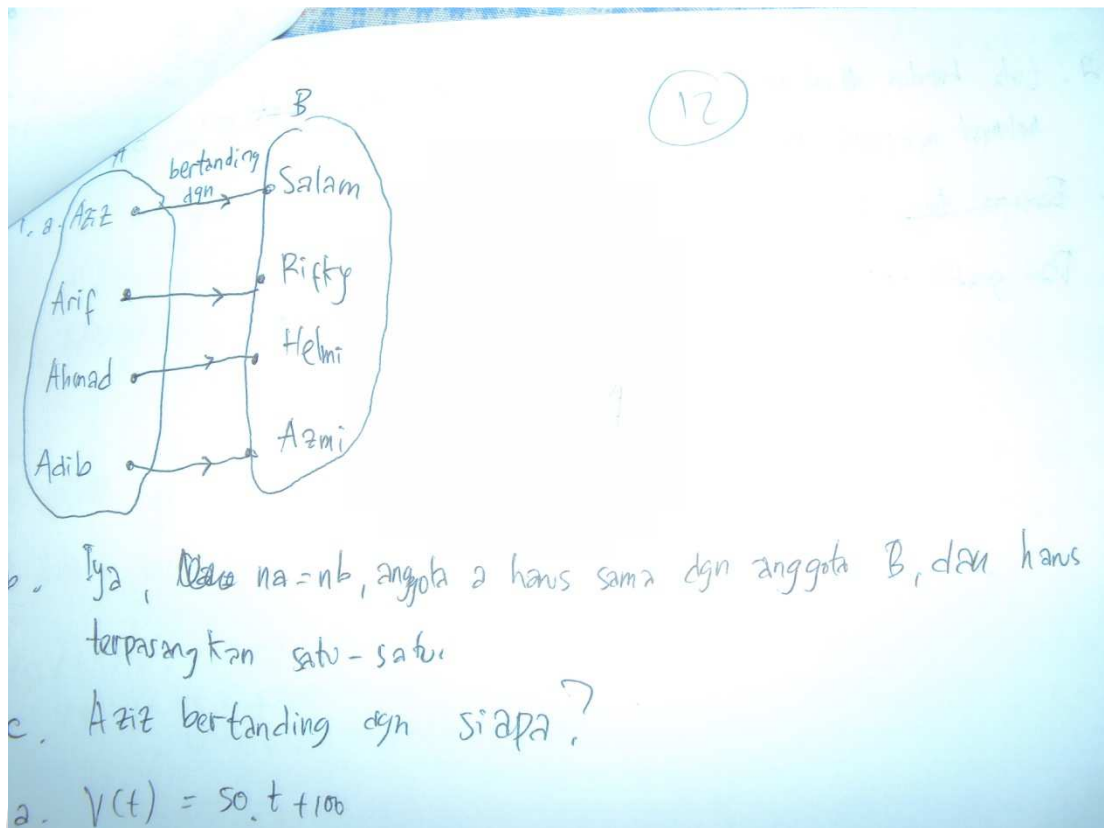 12
A
B
bertanding
dgn
1. a. Aziz
Salam
Arif
Rifky
Ahmad
Helmi
Adib
Azmi
b. Iya, na = nb, anggota a harus sama dgn anggota B, dan harus
terpasangkan satu-satu.
c. Aziz bertanding dgn siapa?
a. V(t) = 50.t + 100